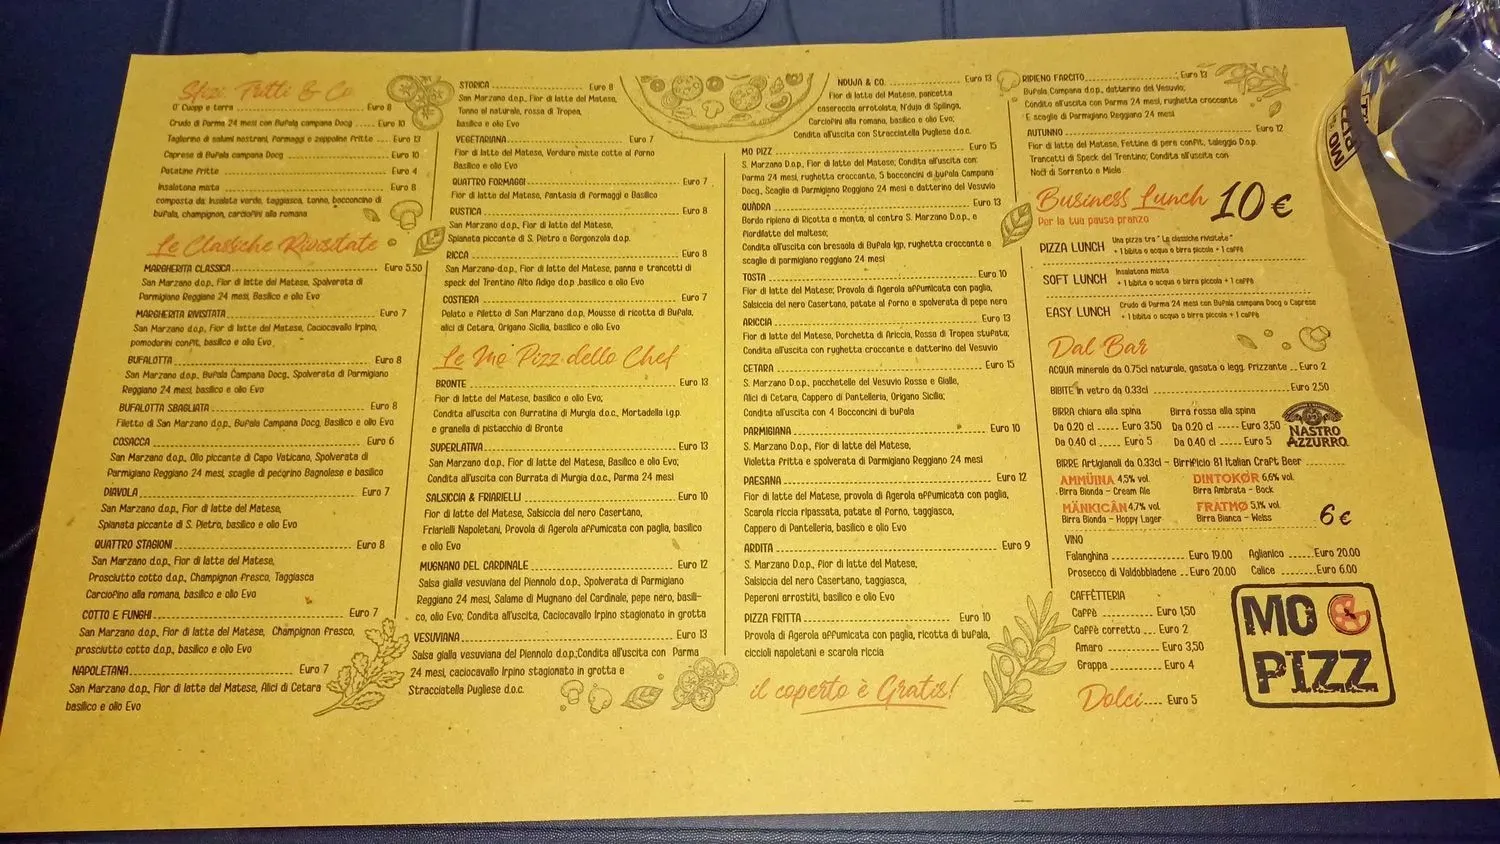 Sfizi Fritti & Co
O' Cuopp e terra Euro 8
Crudo di Parma 24 mesi con Bufala campana Docg Euro 10
Tagliering di salumi nostrani, Formaggi e zeppoline Fritte Euro 13
Caprese di Bufala campana Docg Euro 10
Patatine Fritte Euro 4
Insalatona mista Euro 8
composta da: Insalata verde, taggiasca, tonno, bocconcino di
bufala, champignon, carciofini alla romana
Le Classiche Rivisitate
MARGHERITA CLASSICA Euro 5.50
San Marzano d.o.p., Fior di latte del Matese, Spolverata di
Parmigiano Reggiano 24 mesi, Basilico e olio Evo
MARGHERITA RIVISITATA Euro 7
San Marzano d.o.p., Fior di latte del Matese, Caciocavallo Irpino,
pomodorini confit, basilico e olio Evo
BUFALOTTA Euro 8
San Marzano d.o.p., Bufala Campana Docg., Spolverata di Parmigiano
Reggiano 24 mesi, basilico e olio Evo
BUFALOTTA SBAGLIATA Euro 8
Filetto di San Marzano d.o.p., Bufala Campana Docg, Basilico e olio Evo
COSACCA Euro 6
San Marzano d.o.p., Olio piccante di Capo Vaticano, Spolverata di
Parmigiano Reggiano 24 mesi, scaglie di pecorino Bagnolese e basilico
DIAVOLA Euro 7
San Marzano d.o.p., Fior di latte del Matese,
Spianata piccante di S. Pietro, basilico e olio Evo
QUATTRO STAGIONI Euro 8
San Marzano d.o.p., Fior di latte del Matese,
Prosciutto cotto d.o.p., Champignon Fresco, Taggiasca
Carciofino alla romana, basilico e olio Evo
COTTO E FUNGHI Euro 7
San Marzano d.o.p., Fior di latte del Matese, Champignon fresco,
prosciutto cotto d.o.p., basilico e olio Evo
NAPOLETANA Euro 7
San Marzano d.o.p., Fior di latte del Matese, Alici di Cetara
basilico e olio Evo
STORICA Euro 8
San Marzano d.o.p., Fior di latte del Matese,
Tonno al naturale, rossa di Tropea,
basilico e olio Evo
VEGETARIANA Euro 7
Fior di latte del Matese, Verdure miste cotte al forno
Basilico e olio Evo
QUATTRO FORMAGGI Euro 7
Fior di latte del Matese, Fantasia di Formaggi e Basilico
RUSTICA Euro 8
San Marzano d.o.p., Fior di latte del Matese,
Spianata piccante di S. Pietro e Gorgonzola d.o.p.
RICCA Euro 8
San Marzano d.o.p., Fior di latte del Matese, panna e trancetti di
speck del Trentino Alto Adige d.o.p ,basilico e olio Evo
COSTIERA Euro 7
Pelato e Filetto di San Marzano d.o.p, Mousse di ricotta di Bufala,
alici di Cetara, Origano Sicilia, basilico e olio Evo
Le Mo Pizz dello Chef
BRONTE Euro 13
Fior di latte del Matese, basilico e olio Evo;
Condita all'uscita con Burratina di Murgia d.o.c., Mortadella i.g.p.
e granella di pistacchio di Bronte
SUPERLATIVA Euro 13
San Marzano d.o.p., Fior di latte del Matese, Basilico e olio Evo;
Condita all'uscita con Burrata di Murgia d.o.c., Parma 24 mesi
SALSICCIA & FRIARIELLI Euro 10
Fior di latte del Matese, Salsiccia del nero Casertano,
Friarielli Napoletani, Provola di Agerola affumicata con paglia, basilico
e olio Evo
MUGNANO DEL CARDINALE Euro 12
Salsa gialla vesuviana del Piennolo d.o.p., Spolverata di Parmigiano
Reggiano 24 mesi, Salame di Mugnano del Cardinale, pepe nero, basili-
co, olio Evo; Condita all'uscita, Caciocavallo Irpino stagionato in grotta
VESUVIANA Euro 13
Salsa gialla vesuviana del Piennolo d.o.p.;Condita all'uscita con Parma
24 mesi, caciocavallo Irpino stagionato in grotta e
Stracciatella Pugliese d.o.c.
NDUJA & CO. Euro 13
Fior di latte del Matese, pancetta
casereccia arrotolata, N'duja di Spilinga,
Carciofini alla romana, basilico e olio Evo;
Condita all'uscita con Stracciatella Pugliese d.o.c.
MO PIZZ Euro 15
S. Marzano D.o.p., Fior di latte del Matese; Condita all'uscita con:
Parma 24 mesi, rughetta croccante, 5 bocconcini di bufala Campana
Docg., Scaglie di Parmigiano Reggiano 24 mesi e datterino del Vesuvio
QUADRA Euro 13
Bordo ripieno di Ricotta e menta, al centro S. Marzano D.o.p., e
fiordilatte del maltese;
Condita all'uscita con bresaola di Bufala Igp, rughetta croccante e
scaglie di parmigiano reggiano 24 mesi
TOSTA Euro 10
Fior di latte del Matese; Provola di Agerola affumicata con paglia,
Salsiccia del nero Casertano, patate al forno e spolverata di pepe nero
ARICCIA Euro 13
Fior di latte del Matese, Porchetta di Ariccia, Rossa di Tropea stufata;
Condita all'uscita con rughetta croccante e datterino del Vesuvio
CETARA Euro 15
S. Marzano D.o.p., pacchetelle del Vesuvio Rosse e Gialle,
Alici di Cetara, Cappero di Pantelleria, Origano Sicilia;
Condita all'uscita con 4 Bocconcini di bufala
PARMIGIANA Euro 10
S. Marzano D.o.p., Fior di latte del Matese,
Violetta fritta e spolverata di Parmigiano Reggiano 24 mesi
PAESANA Euro 12
Fior di latte del Matese, provola di Agerola affumicata con paglia,
Scarola riccia ripassata, patate al forno, taggiasca,
Cappero di Pantelleria, basilico e olio Evo
ARDITA Euro 9
S. Marzano D.o.p., Fior di latte del Matese,
Salsiccia del nero Casertano, taggiasca,
Peperoni arrostiti, basilico e olio Evo
PIZZA FRITTA Euro 10
Provola di Agerola affumicata con paglia, ricotta di bufala,
ciccioli napoletani e scarola riccia
il coperto è Gratis!
RIPIENO FARCITO Euro 13
Bufala Campana D.o.p., datterino del Vesuvio;
Condita all'uscita con Parma 24 mesi, rughetta croccante
E scaglie di Parmigiano Reggiano 24 mesi
AUTUNNO Euro 12
Fior di latte del Matese, Fettine di pera confit, taleggio D.o.p.
Trancetti di Speck del Trentino; Condita all'uscita con
Noci di Sorrento e Miele
Business Lunch 10 €
Per la tua pausa pranzo
PIZZA LUNCH Una pizza tra " Le classiche rivisitate "
+ 1 bibita o acqua o birra piccola + 1 caffè
SOFT LUNCH Insalatona mista
+ 1 bibita o acqua o birra piccola + 1 caffè
EASY LUNCH Crudo di Parma 24 mesi con Bufala campana Docg o Caprese
+ 1 bibita o acqua o birra piccola + 1 caffè
Dal Bar
ACQUA minerale da 0.75cl naturale, gasata o legg. frizzante Euro 2
BIBITE in vetro da 0.33cl Euro 2,50
BIRRA chiara alla spina Birra rossa alla spina
Da 0.20 cl Euro 3,50 Da 0.20 cl Euro 3,50
Da 0.40 cl Euro 5 Da 0.40 cl Euro 5
NASTRO AZZURRO
BIRRE Artigianali da 0.33cl - Birrificio 81 Italian Craft Beer
AMMÜINA 4,5% vol. DINTOKØR 6,6% vol.
Birra Bionda - Cream Ale Birra Ambrata - Bock
MÄNKICÂN 4,7% vol. FRATMØ 5,1% vol.
Birra Bionda - Hoppy Lager Birra Bianca - Weiss
6 €
VINO
Falanghina Euro 19.00 Aglianico Euro 20.00
Prosecco di Valdobbiadene Euro 20.00 Calice Euro 6.00
CAFFÈTTERIA
Caffè Euro 1,50
Caffè corretto Euro 2
Amaro Euro 3,50
Grappa Euro 4
Dolci Euro 5
MO
PIZZ
MO
PIZZ